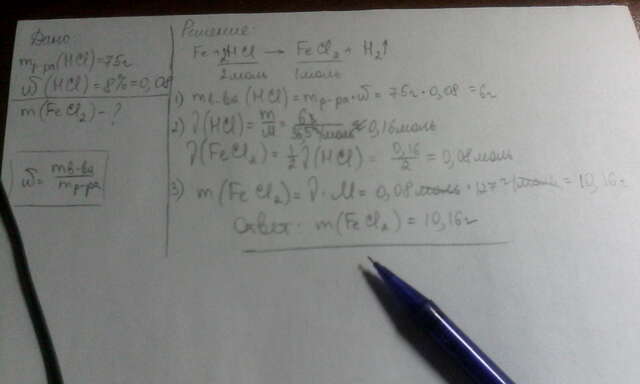 Дано:
mр-ра(HCl)=75г
ω(HCl)=8%=0,08
m(FeCl₂)-?
ω=mв-ва/mр-ра
Решение:
Fe+2HCl → FeCl₂ + H₂↑
2моль 1моль
1) mв-ва(HCl)=mр-ра·ω=75г·0,08=6г
2) ν(HCl)=m/M=6г/36,5г/моль≈0,16моль
ν(FeCl₂)=1/2ν(HCl)=0,16/2=0,08моль
3) m(FeCl₂)=ν·M=0,08моль·127г/моль=10,16г
Ответ: m(FeCl₂)=10,16г